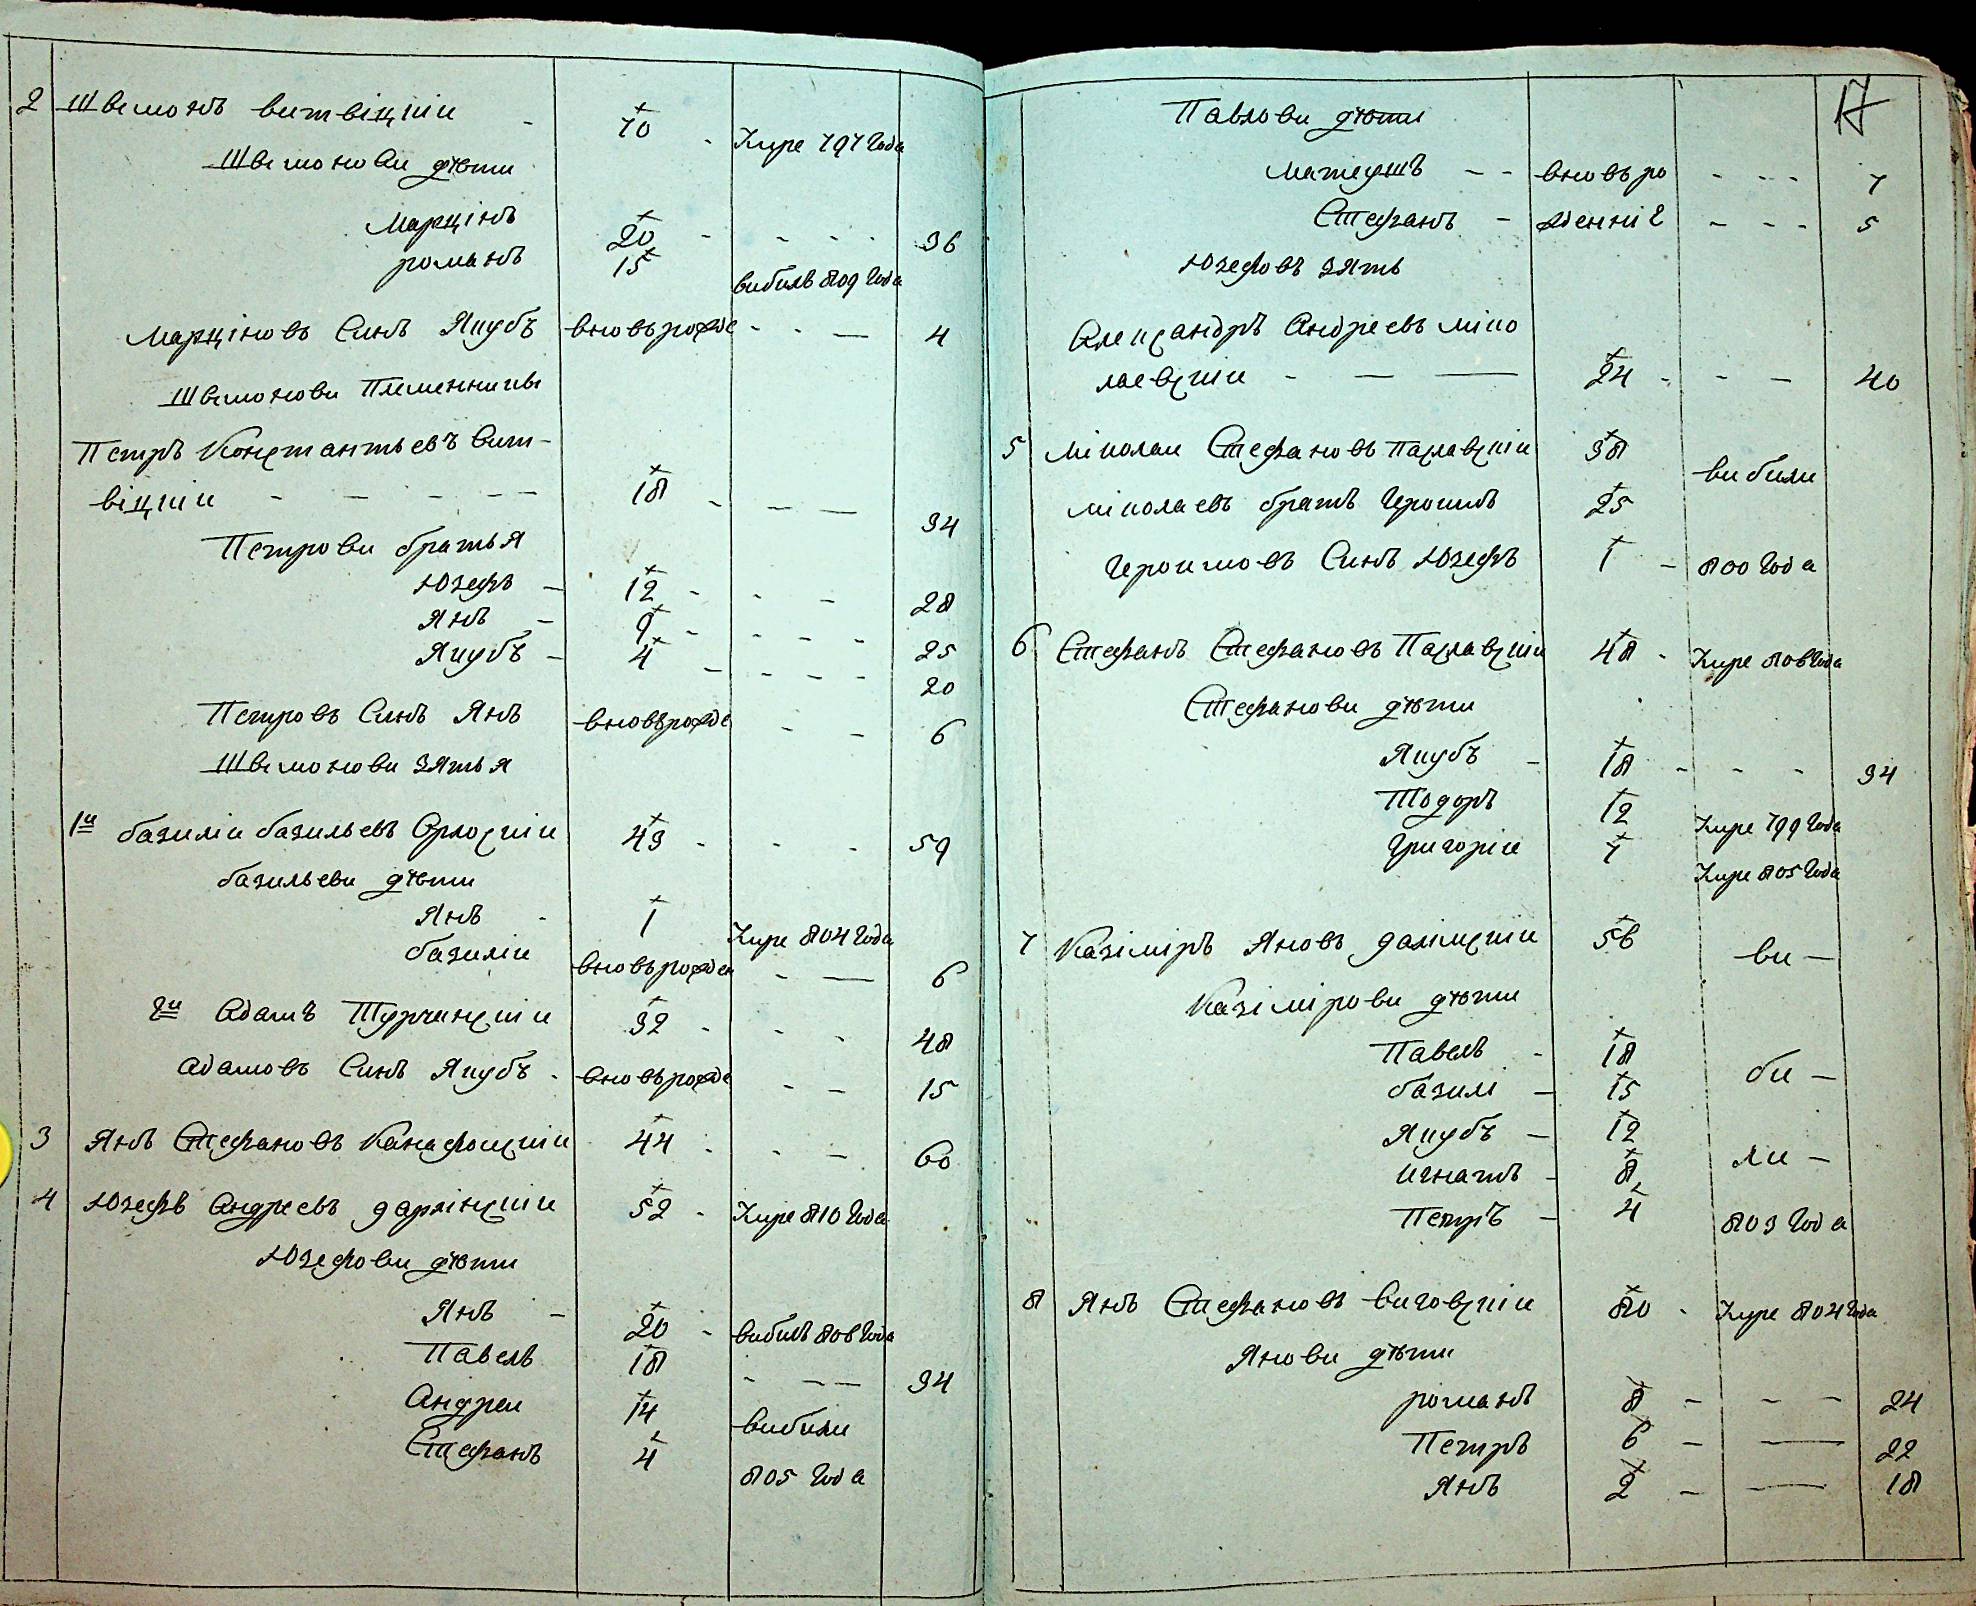 2 Швемонъ витвіцкіи - 70 - Умре 797 Года
Швемонови дѣти
Марцінъ 20 - - - - 36
романъ 15 вибилъ 809 Года
Марціновъ Синъ Якубъ вновьрожде - - — 4
Швемонови Племенники
Петръ Константьевъ Вит-
віцкіи - - - - - 18 - - — 34
Петрови братья
Юзефъ - 12 - - - 28
Янъ - 9 - - - - 25
Якубъ - 4 - - - - 20
Петровъ Синъ Янъ вновьрожде - - 6
Швемонови зятья
1и базиліи базильевъ Орлоскіи 43 - - - 59
базильеви дѣти
Янъ - 1 Умре 804 Года
базиліи вновьрожден - — 6
2и Адамъ Турчинскіи 32 - - - 48
Адамовъ Синъ Якубъ - вновьрожде - - 15
3 Янъ Стефановъ Канафоцкіи 44 - - - 60
4 Юзефъ Андреевъ дарлінскіи 52 - Умре 810 Года
Юзефови дѣти
Янъ - 20 - вибилъ 806 Года
Павелъ 18 - - — 34
Андреи 14 вибили
Стефанъ 4 805 Года
17
Павлови дѣти
Матеушъ - - вновьро - - - 7
Стефанъ - жденніе - - - 5
Юзефовъ зять
Александръ Андреевъ міко
лаевскіи - — — 24 - - — 40
5 Міколаи Стефановъ Паславскіи 38 вибили
Міколаевъ братъ Іеронимъ 25
Іеронимовъ Синъ Юзефъ 1 - 800 Года
6 Стефанъ Стефановъ Паславскіи 48 - Умре 806 Года
Стефанови дѣти
Якубъ - 18 - - - 34
Тодоръ 12 Умре 799 Года
Григоріи 7 Умре 805 Года
7 Казіміръ Яновъ далімскіи 56 ви —
Казімірови дѣти
Павелъ - 18
базилі — 15 би —
Якубъ — 12
Игнатъ - 8 ли —
Петръ — 4 803 Года
8 Янъ Стефановъ виговскіи 80 - Умре 804 Года
Янови дѣти
романъ 8 - - - 24
Петръ 6 - — 22
Янъ 2 - — 18